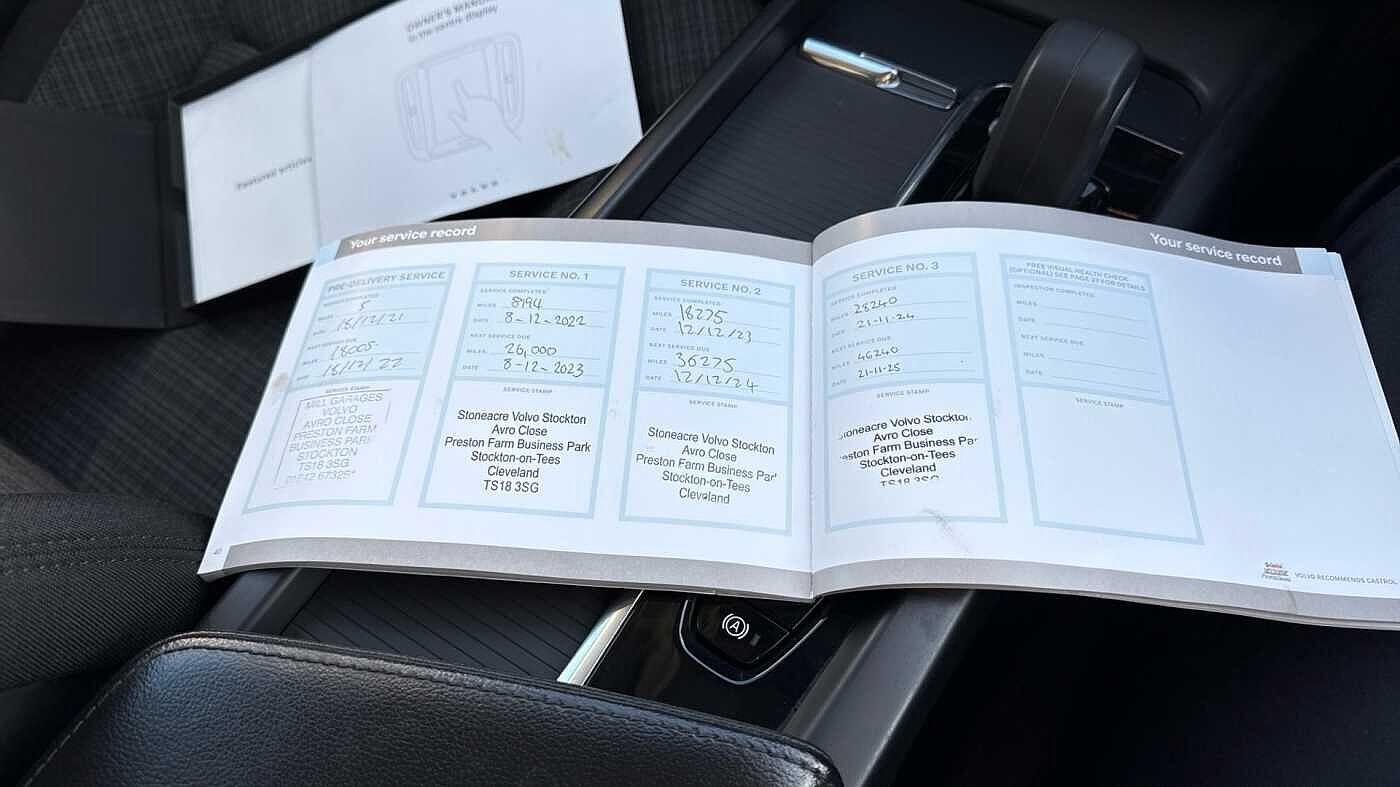 OWNER'S MANUAL
in the centre display
Featured articles
VOLVO
Your service record
PRE-DELIVERY SERVICE
MILES 5
DATE 18/12/21
NEXT SERVICE DUE
MILES 18005
DATE 18/12/22
SERVICE STAMP
MILL GARAGES
VOLVO
AVRO CLOSE
PRESTON FARM
BUSINESS PARK
STOCKTON
TS18 3SG
SERVICE NO. 1
SERVICE COMPLETED
MILES 8194
DATE 8-12-2022
NEXT SERVICE DUE
MILES 26,000
DATE 8-12-2023
SERVICE STAMP
Stoneacre Volvo Stockton
Avro Close
Preston Farm Business Park
Stockton-on-Tees
Cleveland
TS18 3SG
SERVICE NO. 2
SERVICE COMPLETED
MILES 18275
DATE 12/12/23
NEXT SERVICE DUE
MILES 36275
DATE 12/12/24
SERVICE STAMP
Stoneacre Volvo Stockton
Avro Close
Preston Farm Business Par
Stockton-on-Tees
Cleveland
40
Your service record
SERVICE NO. 3
SERVICE COMPLETED
MILES 28240
DATE 21-11-24
NEXT SERVICE DUE
MILES 46240
DATE 21-11-25
SERVICE STAMP
Stoneacre Volvo Stockton
Avro Close
Preston Farm Business Par
Stockton-on-Tees
Cleveland
TS18 3SG
FREE VISUAL HEALTH CHECK
(OPTIONAL) SEE PAGE 27 FOR DETAILS
INSPECTION COMPLETED
MILES
DATE
NEXT SERVICE DUE
MILES
DATE
SERVICE STAMP
Castrol
VOLVO RECOMMENDS CASTROL
A